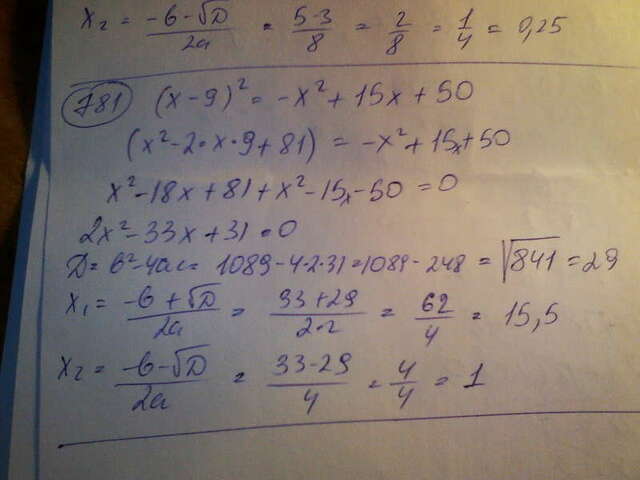 x₂ = (-b-√D)/2a = (5-3)/8 = 2/8 = 1/4 = 0,25
781 (x-9)² = -x² + 15x + 50
(x²-2·x·9+81) = -x²+15x+50
x²-18x+81+x²-15x-50=0
2x²-33x+31=0
D = b²-4ac = 1089-4·2·31=1089-248 = √841 = 29
x₁ = (-b+√D)/2a = (33+29)/2·2 = 62/4 = 15,5
x₂ = (-b-√D)/2a = (33-29)/4 = 4/4 = 1